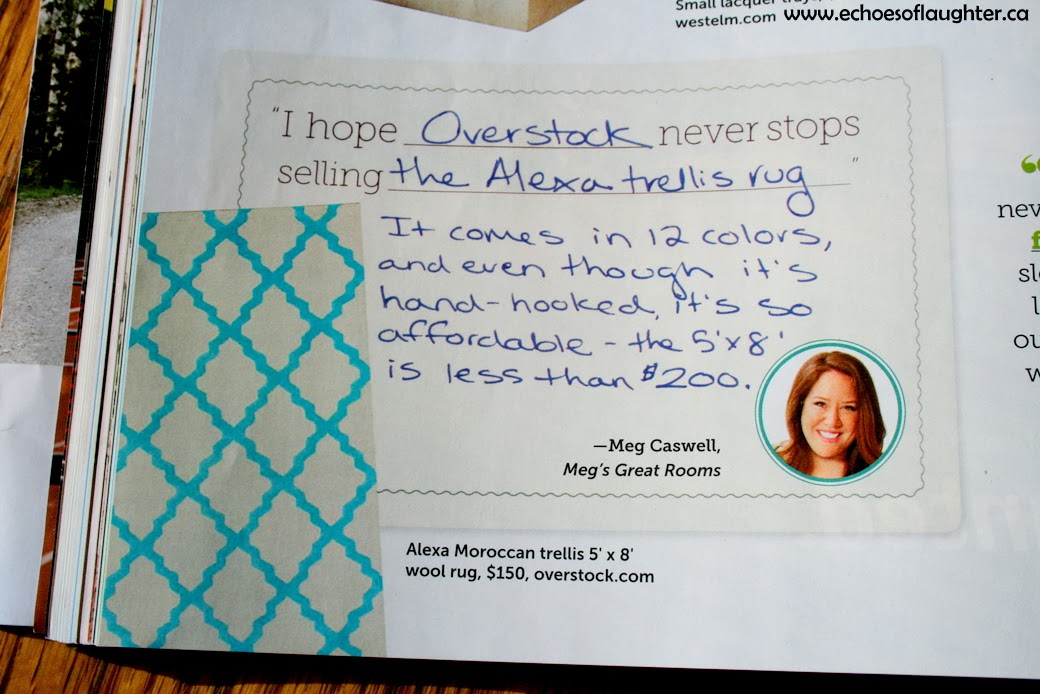 Small lacquer trays,
westelm.com
www.echoesoflaughter.ca
"I hope Overstock never stops
selling the Alexa trellis rug "
It comes in 12 colors,
and even though it's
hand-hooked, it's so
affordable - the 5'x8'
is less than $200.
—Meg Caswell,
Meg's Great Rooms
Alexa Moroccan trellis 5' x 8'
wool rug, $150, overstock.com